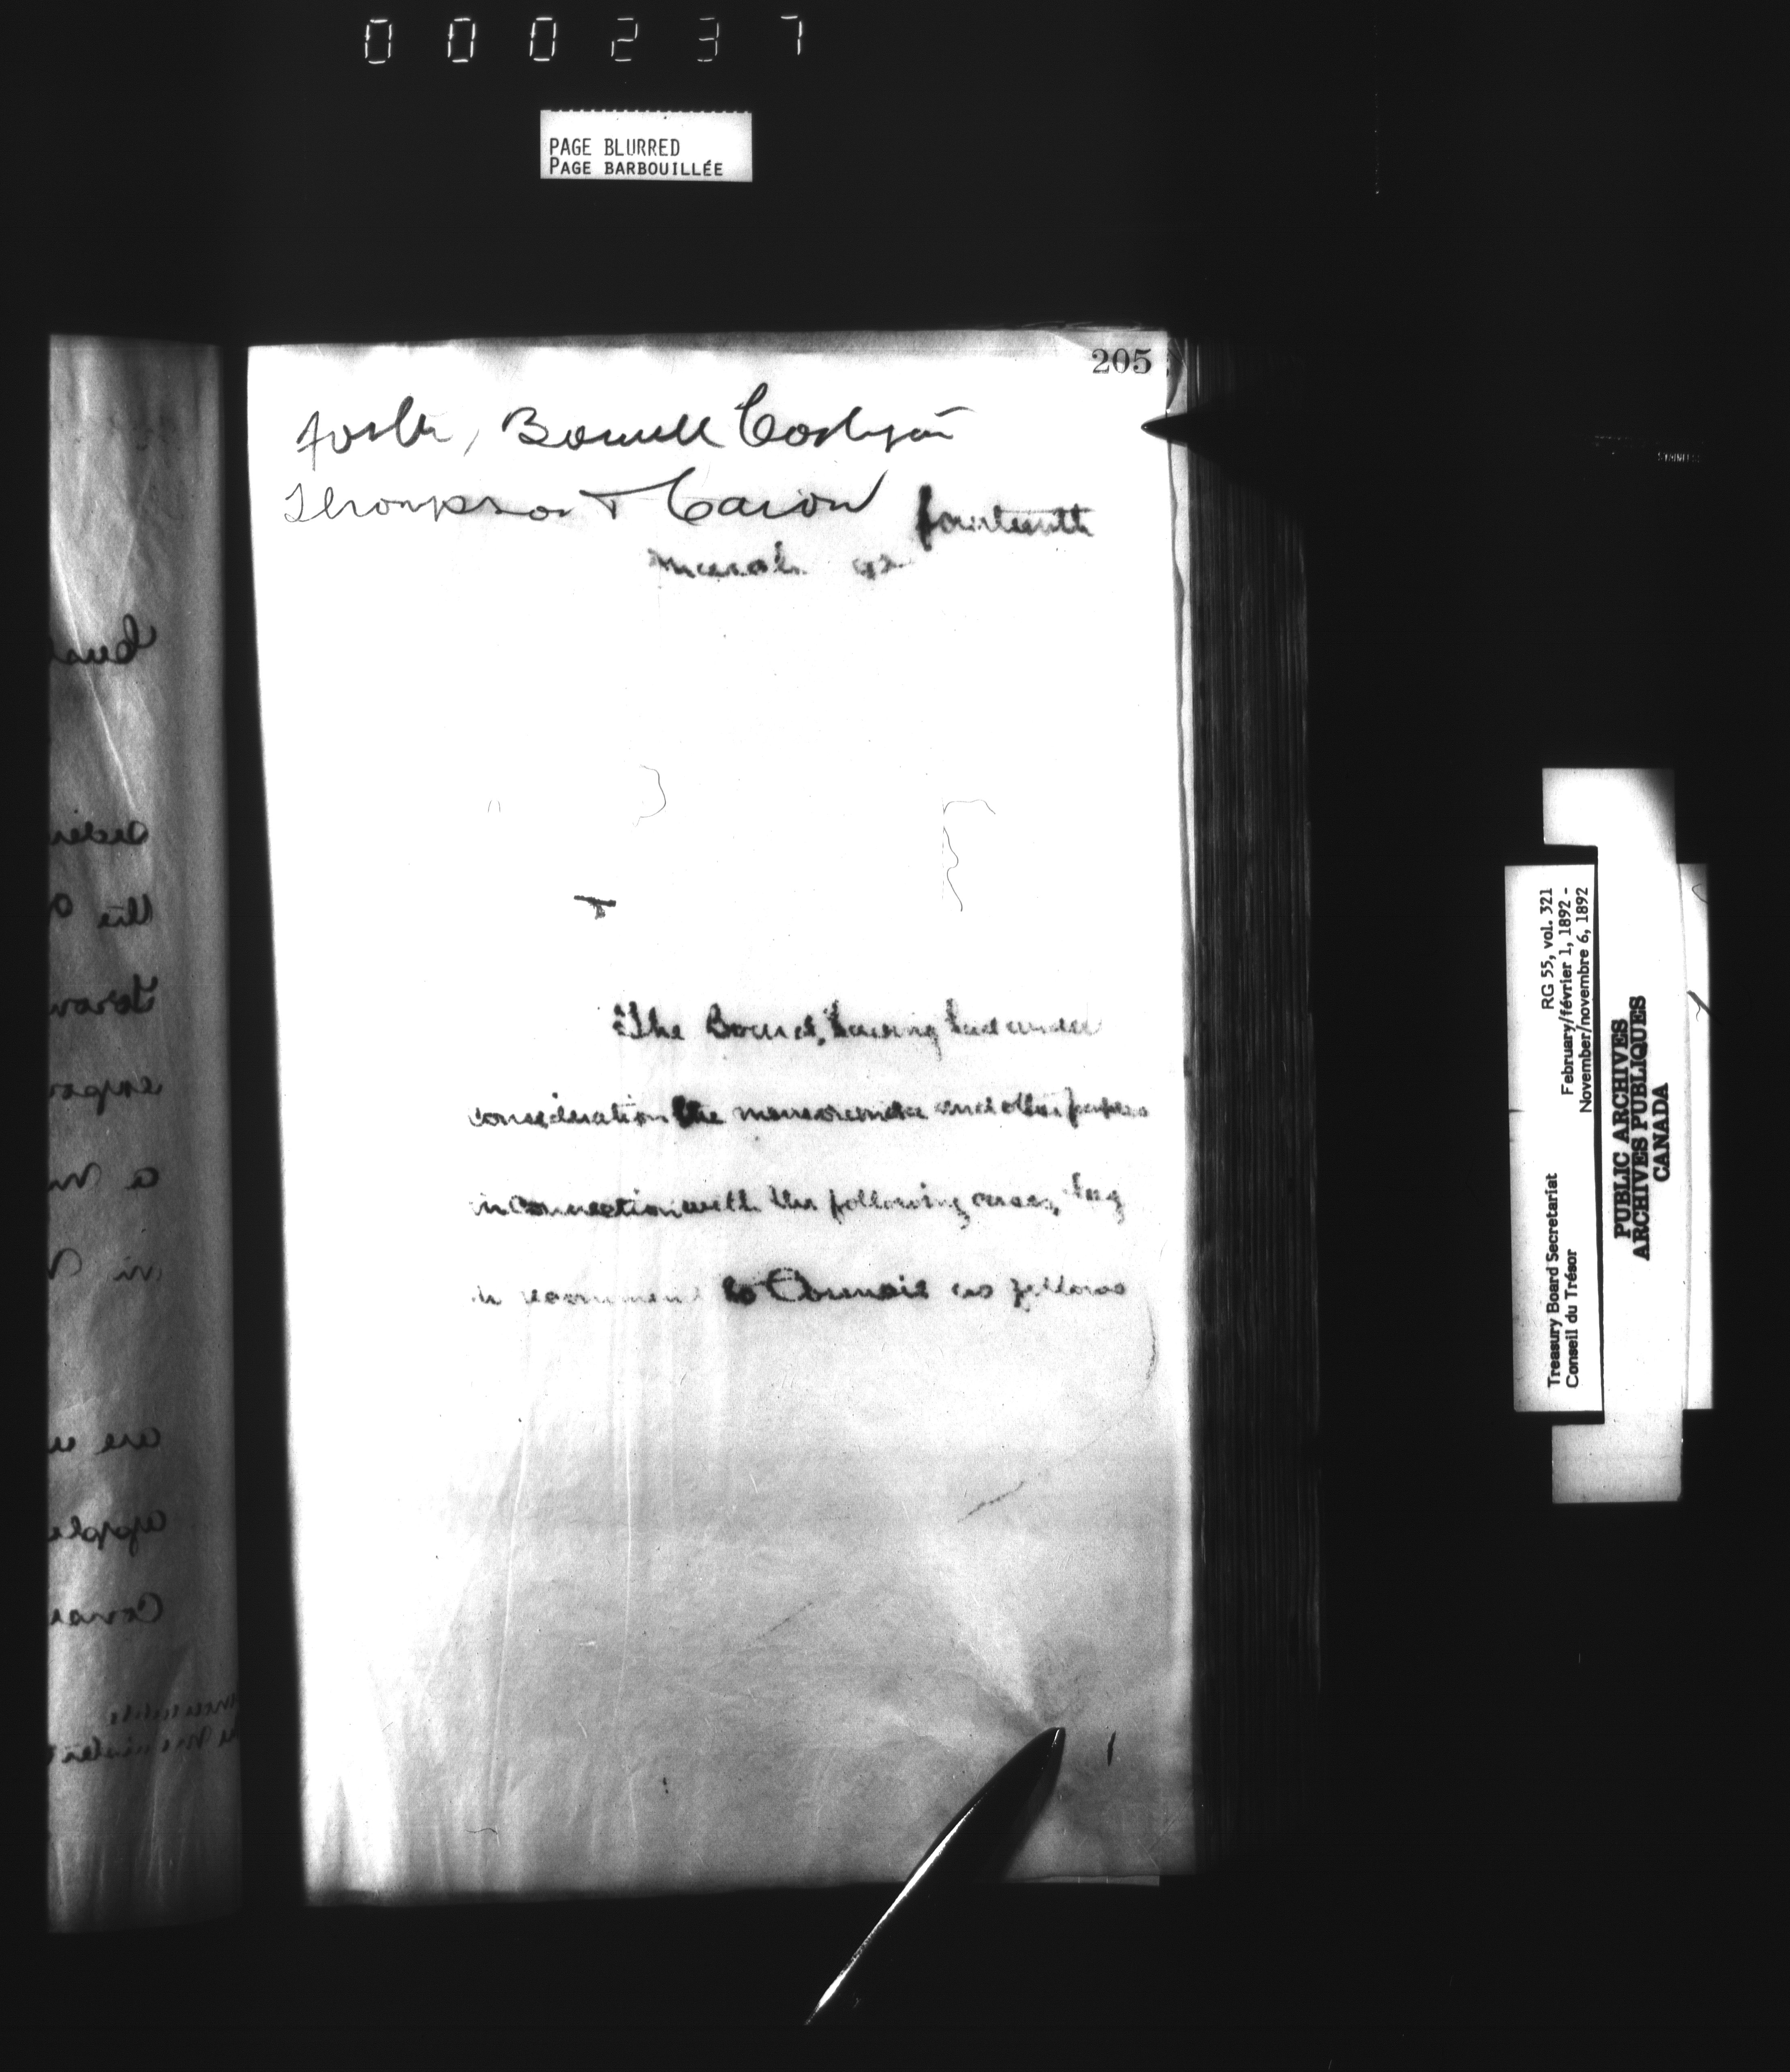 000237
PAGE BLURRED
PAGE BARBOUILLÉE
205
Foster, Bowell Costigan
Thompson + Caron fourteenth
March 92
The Board, having had under
consideration the memoranda and other papers
in connection with the following cases, beg
to recommend to Council as follows
RG 55, vol. 321
February/février 1, 1892 -
November/novembre 6, 1892
Treasury Board Secretariat
Conseil du Trésor
PUBLIC ARCHIVES
ARCHIVES PUBLIQUES
CANADA